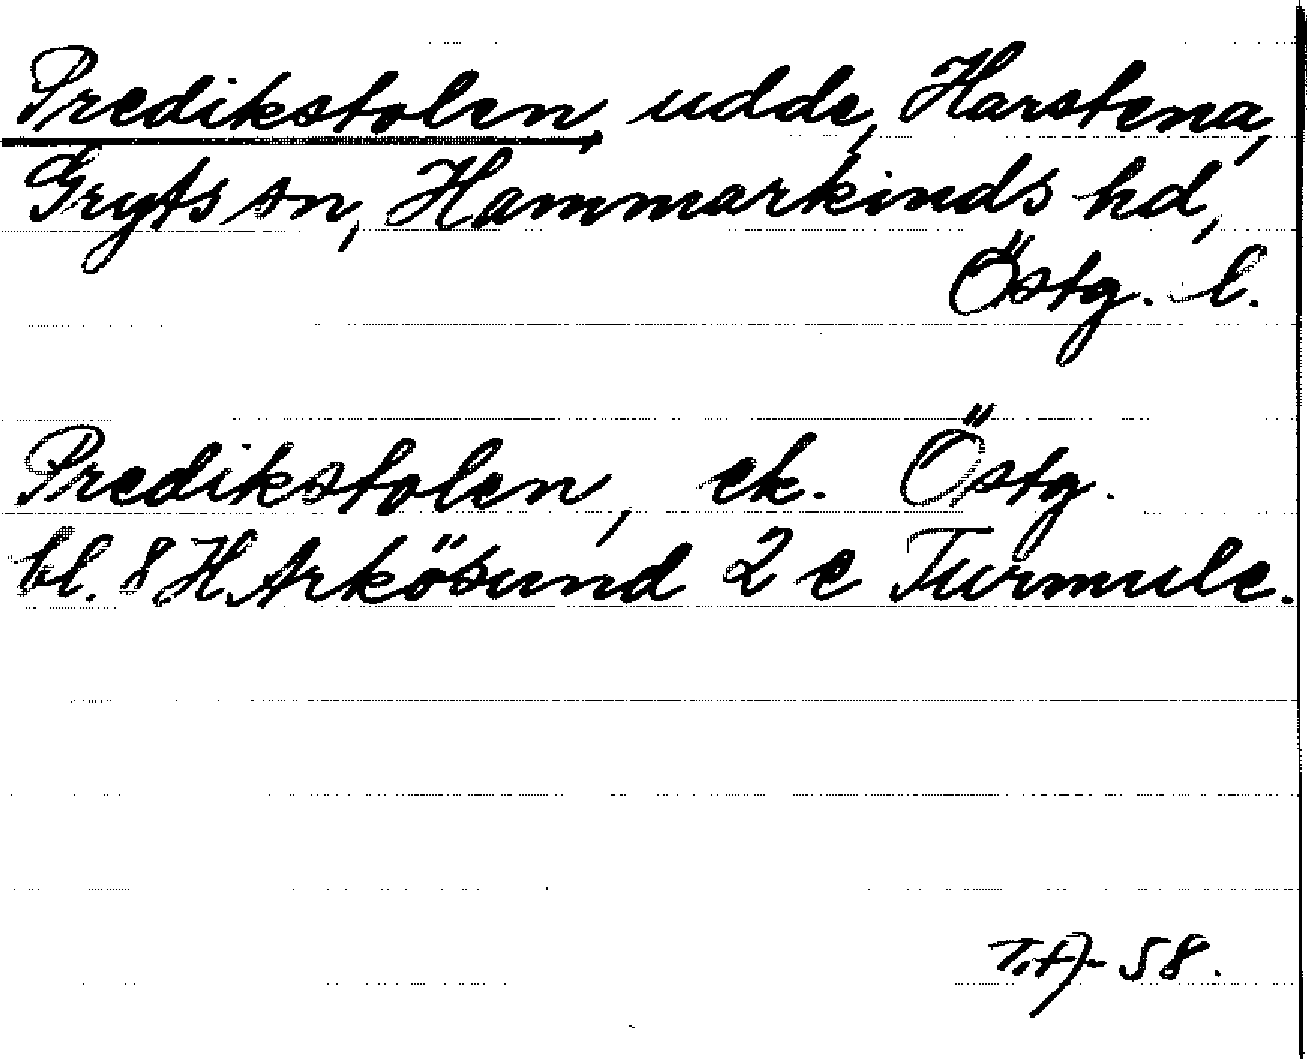 Predikstolen, udde, Harstena,
Gryts sn, Hammarkinds hd,
Östg. l.
Predikstolen, ek. Östg.
bl. 8 H Arkösund 2 e Turmule.
58.